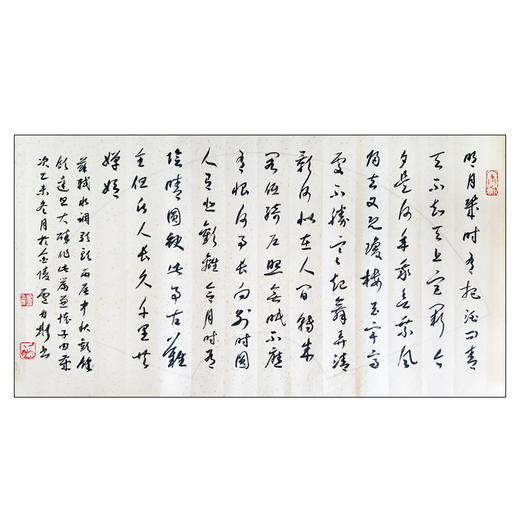 明月幾时有把酒问青
天不知天上宫阙今
夕是何年我欲乘风
归去又恐瓊楼玉宇高
处不勝寒起舞弄清
影何似在人间转朱
阁低绮户照無眠不應
有恨何事長向别时圆
人有悲歡離合月有
陰晴圆缺此事古難
全但願人長久千里共
嬋娟
蘇軾水调歌頭丙辰中秋歡
飲达旦大醉作此篇兼怀子由歲
次乙未冬月於金陵書